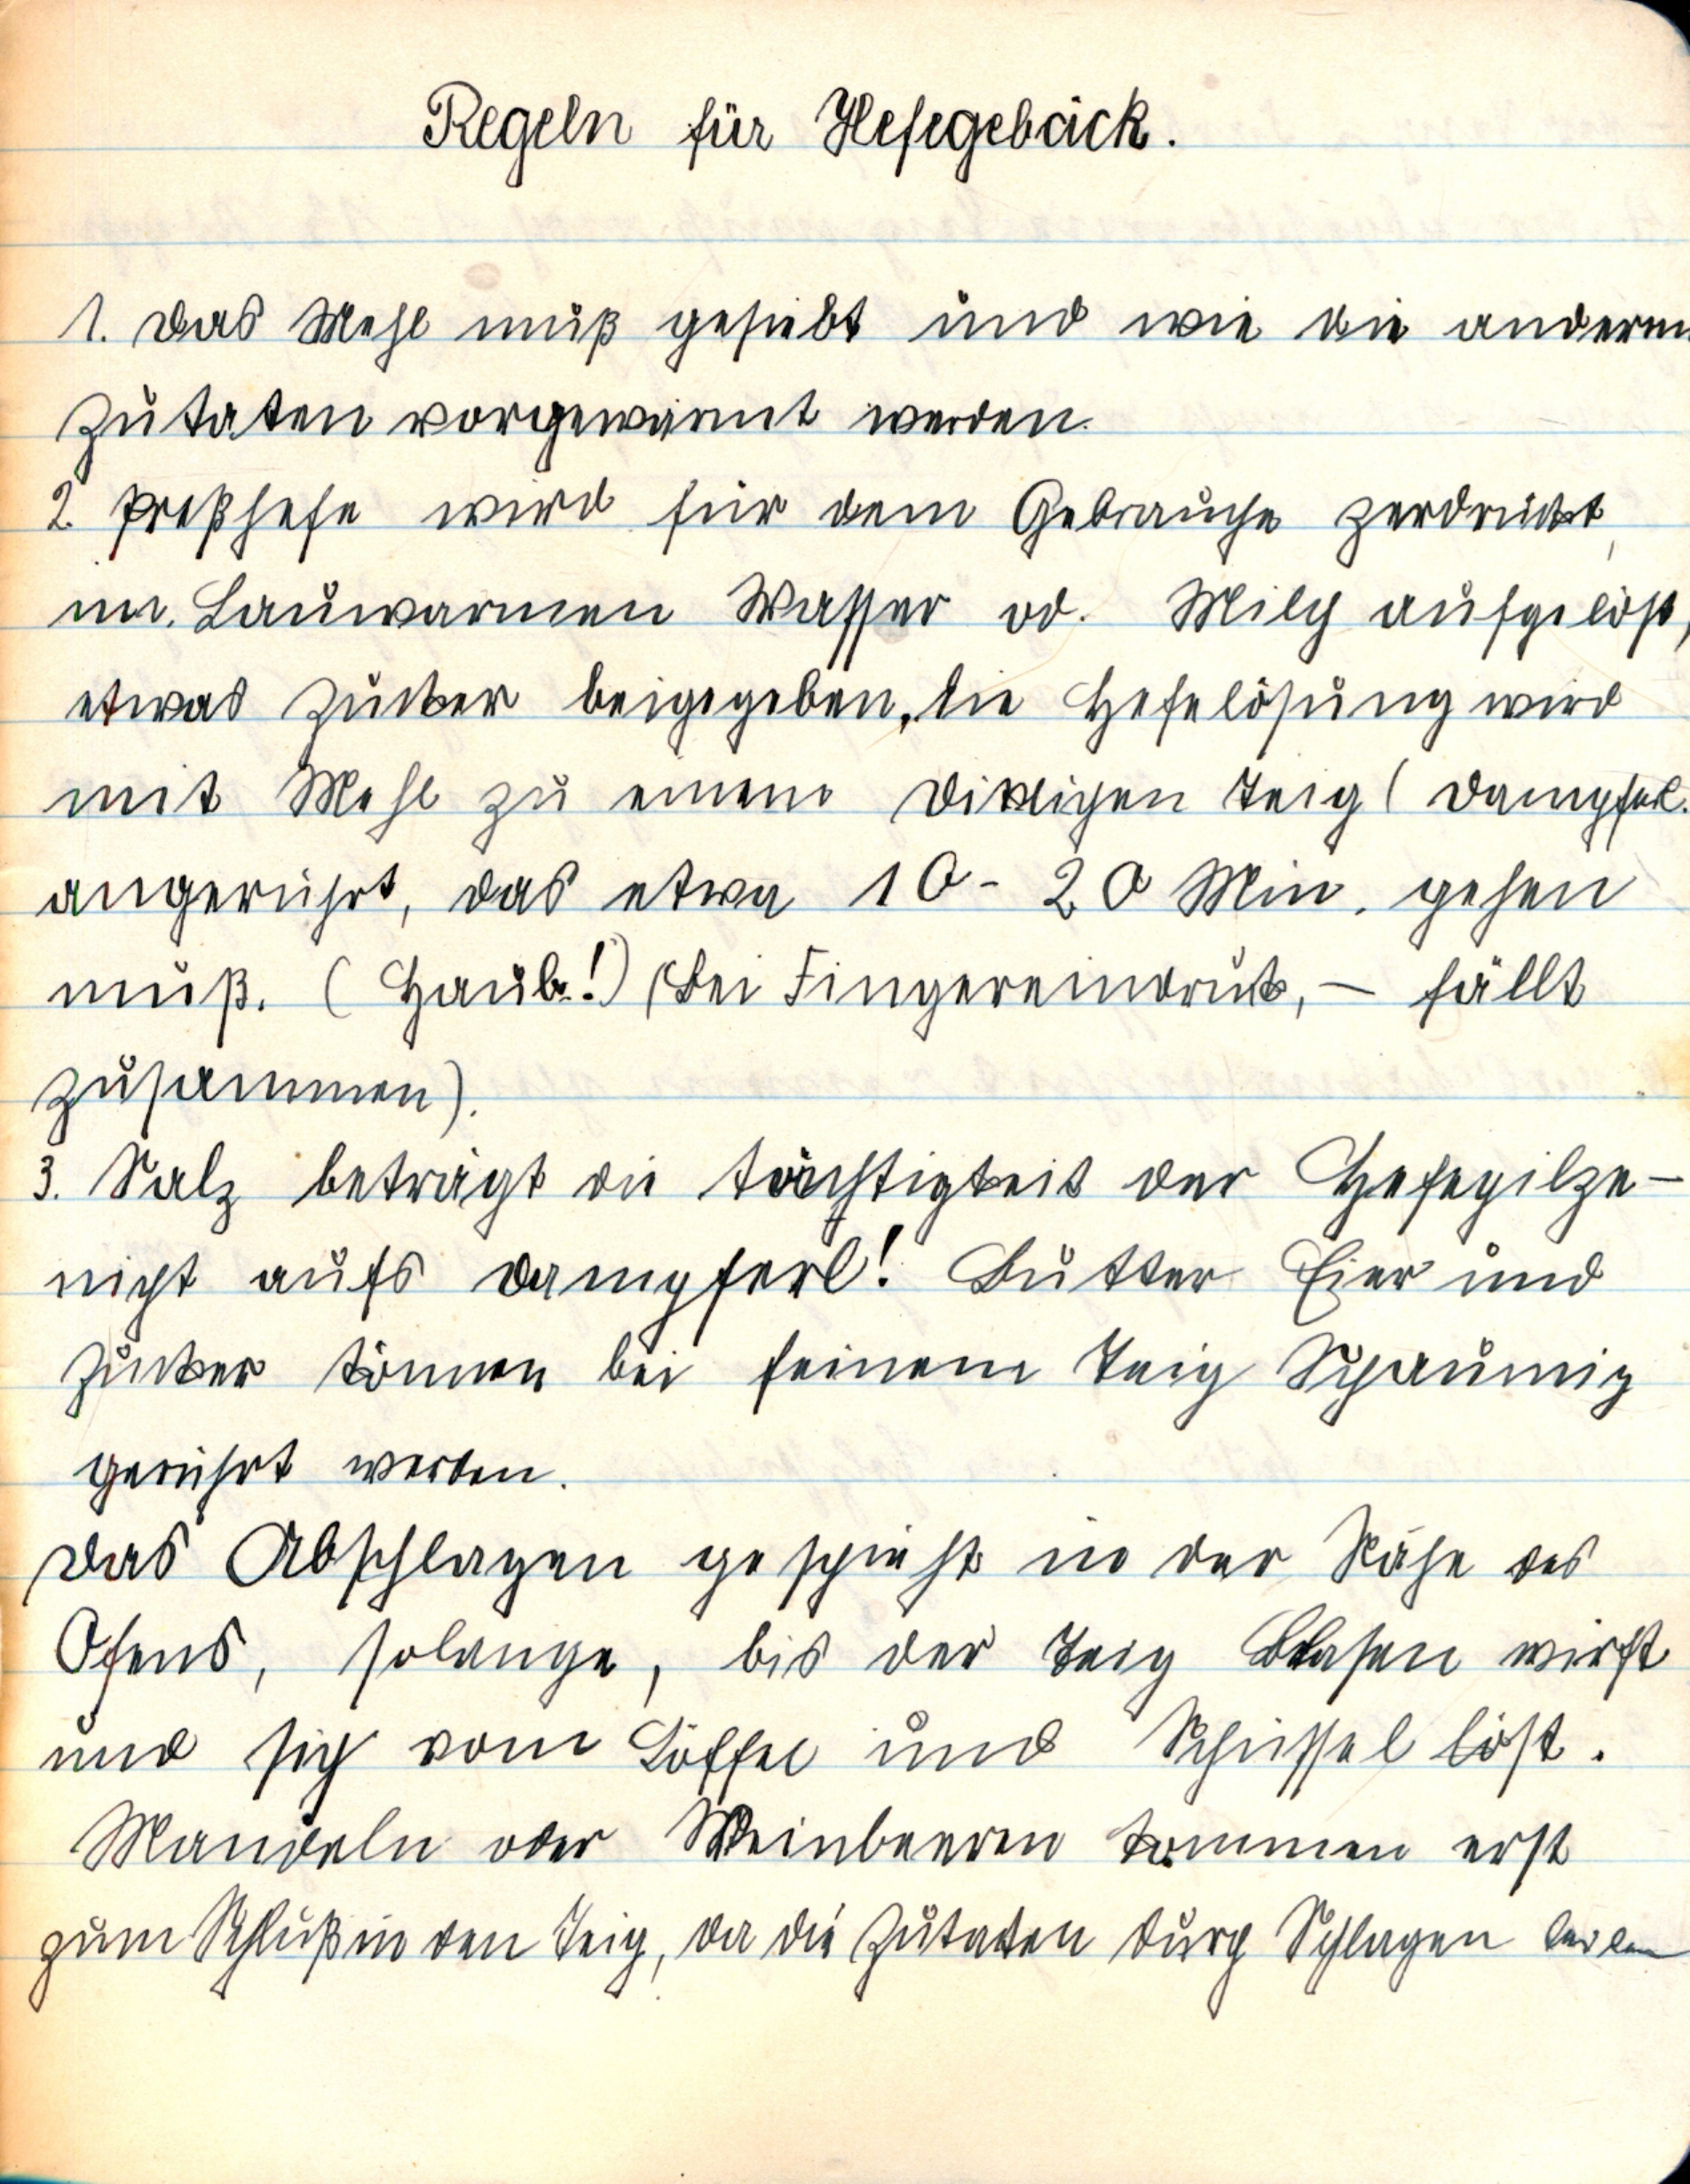 Regeln für Hefegebäck.
1. Das Mehl muß gesiebt und wie die anderen
Zutaten vorgewärmt werden.
2. Preßhefe wird für dem Gebrauche zerdrückt,
im. Lauwarmen Wasser od. Milch aufgelöst,
etwas Zucker beigegeben, die Hefelösung wird
mit Mehl zu einem dicklichen Teig ( Dampferl.
angerührt, das etwa 10 - 20 Min. gehen
muß. ( Haub.!) (bei Fingereindruck, – fällt
zusammen).
3. Salz beträgt die Tüchtigkeit der Hefepilze –
nicht aufs Dampferl! Butter Eier und
Zucker können bei feinem Teig Schaumig
gerührt werden.
Das Abschlagen geschieht in der Nähe des
Ofens, solange, bis der Teig Blasen wirft
und sich vom Löffel und Schüssel löst.
Mandeln oder Weinbeeren kommen erst
zum Schluß in den Teig, da die Zutaten durch Schlagen leiden